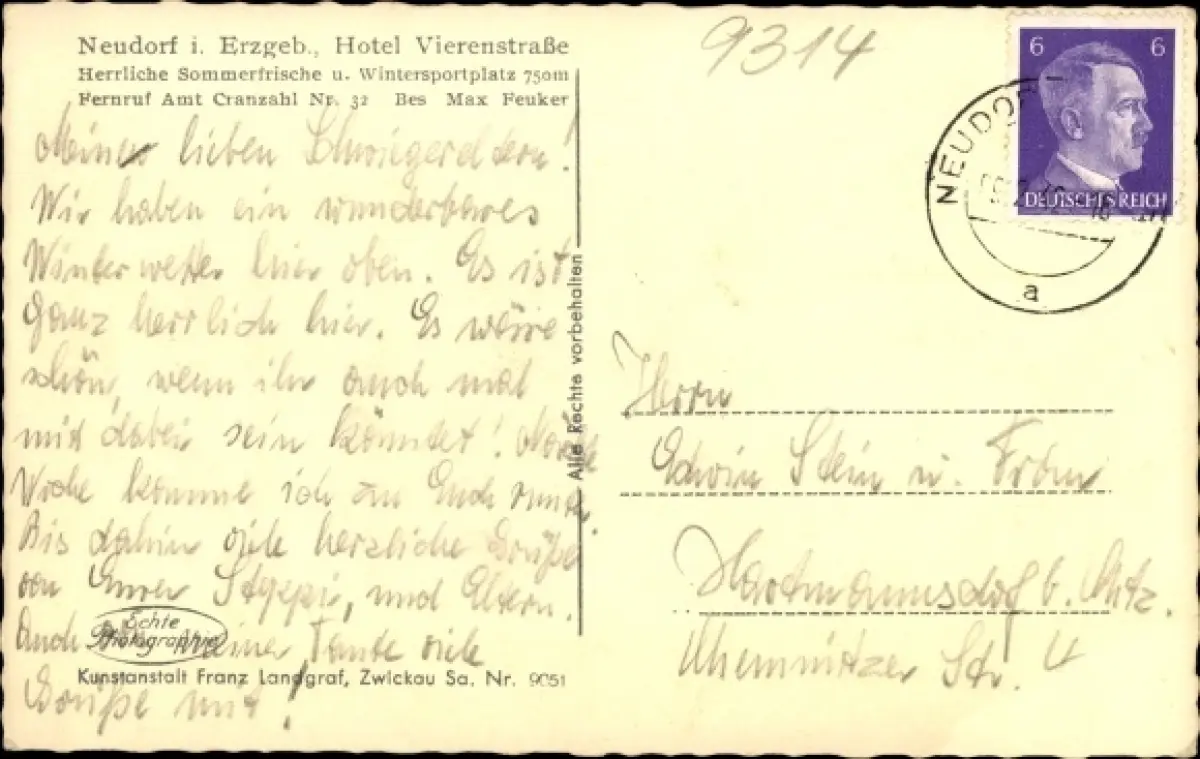 Neudorf i. Erzgeb., Hotel Vierenstraße
Herrliche Sommerfrische u. Wintersportplatz 750m
Fernruf Amt Cranzahl Nr. 32 Bes Max Feuker
Meinen lieben Schwiegereltern!
Wir haben ein wunderbares
Winterwetter hier oben. Es ist
ganz herrlich hier. Es wäre
schön, wenn ihr auch mal
mit dabei sein könntet!
Woche komme ich zu Euch
Bis dahin viele herzliche Grüße
von Eurer und Eltern.
Auch meiner Tante viele
Grüße mit!
Echte
Photographie
Kunstanstalt Franz Landgraf, Zwickau Sa. Nr. 9051
Alle Rechte vorbehalten
9314
6 6
DEUTSCHES REICH
NEUDORF
a
Herrn
Edwin Stein u. Frau
Hartmannsdorf b. Chtz.
Chemnitzer Str. 4